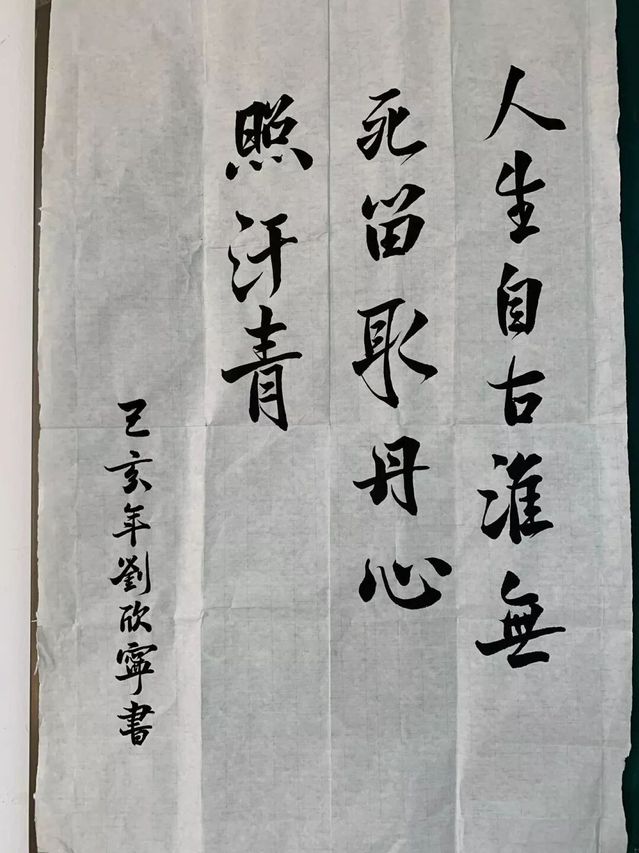 人生自古谁無
死留取丹心
照汗青
己亥年劉欣寧書